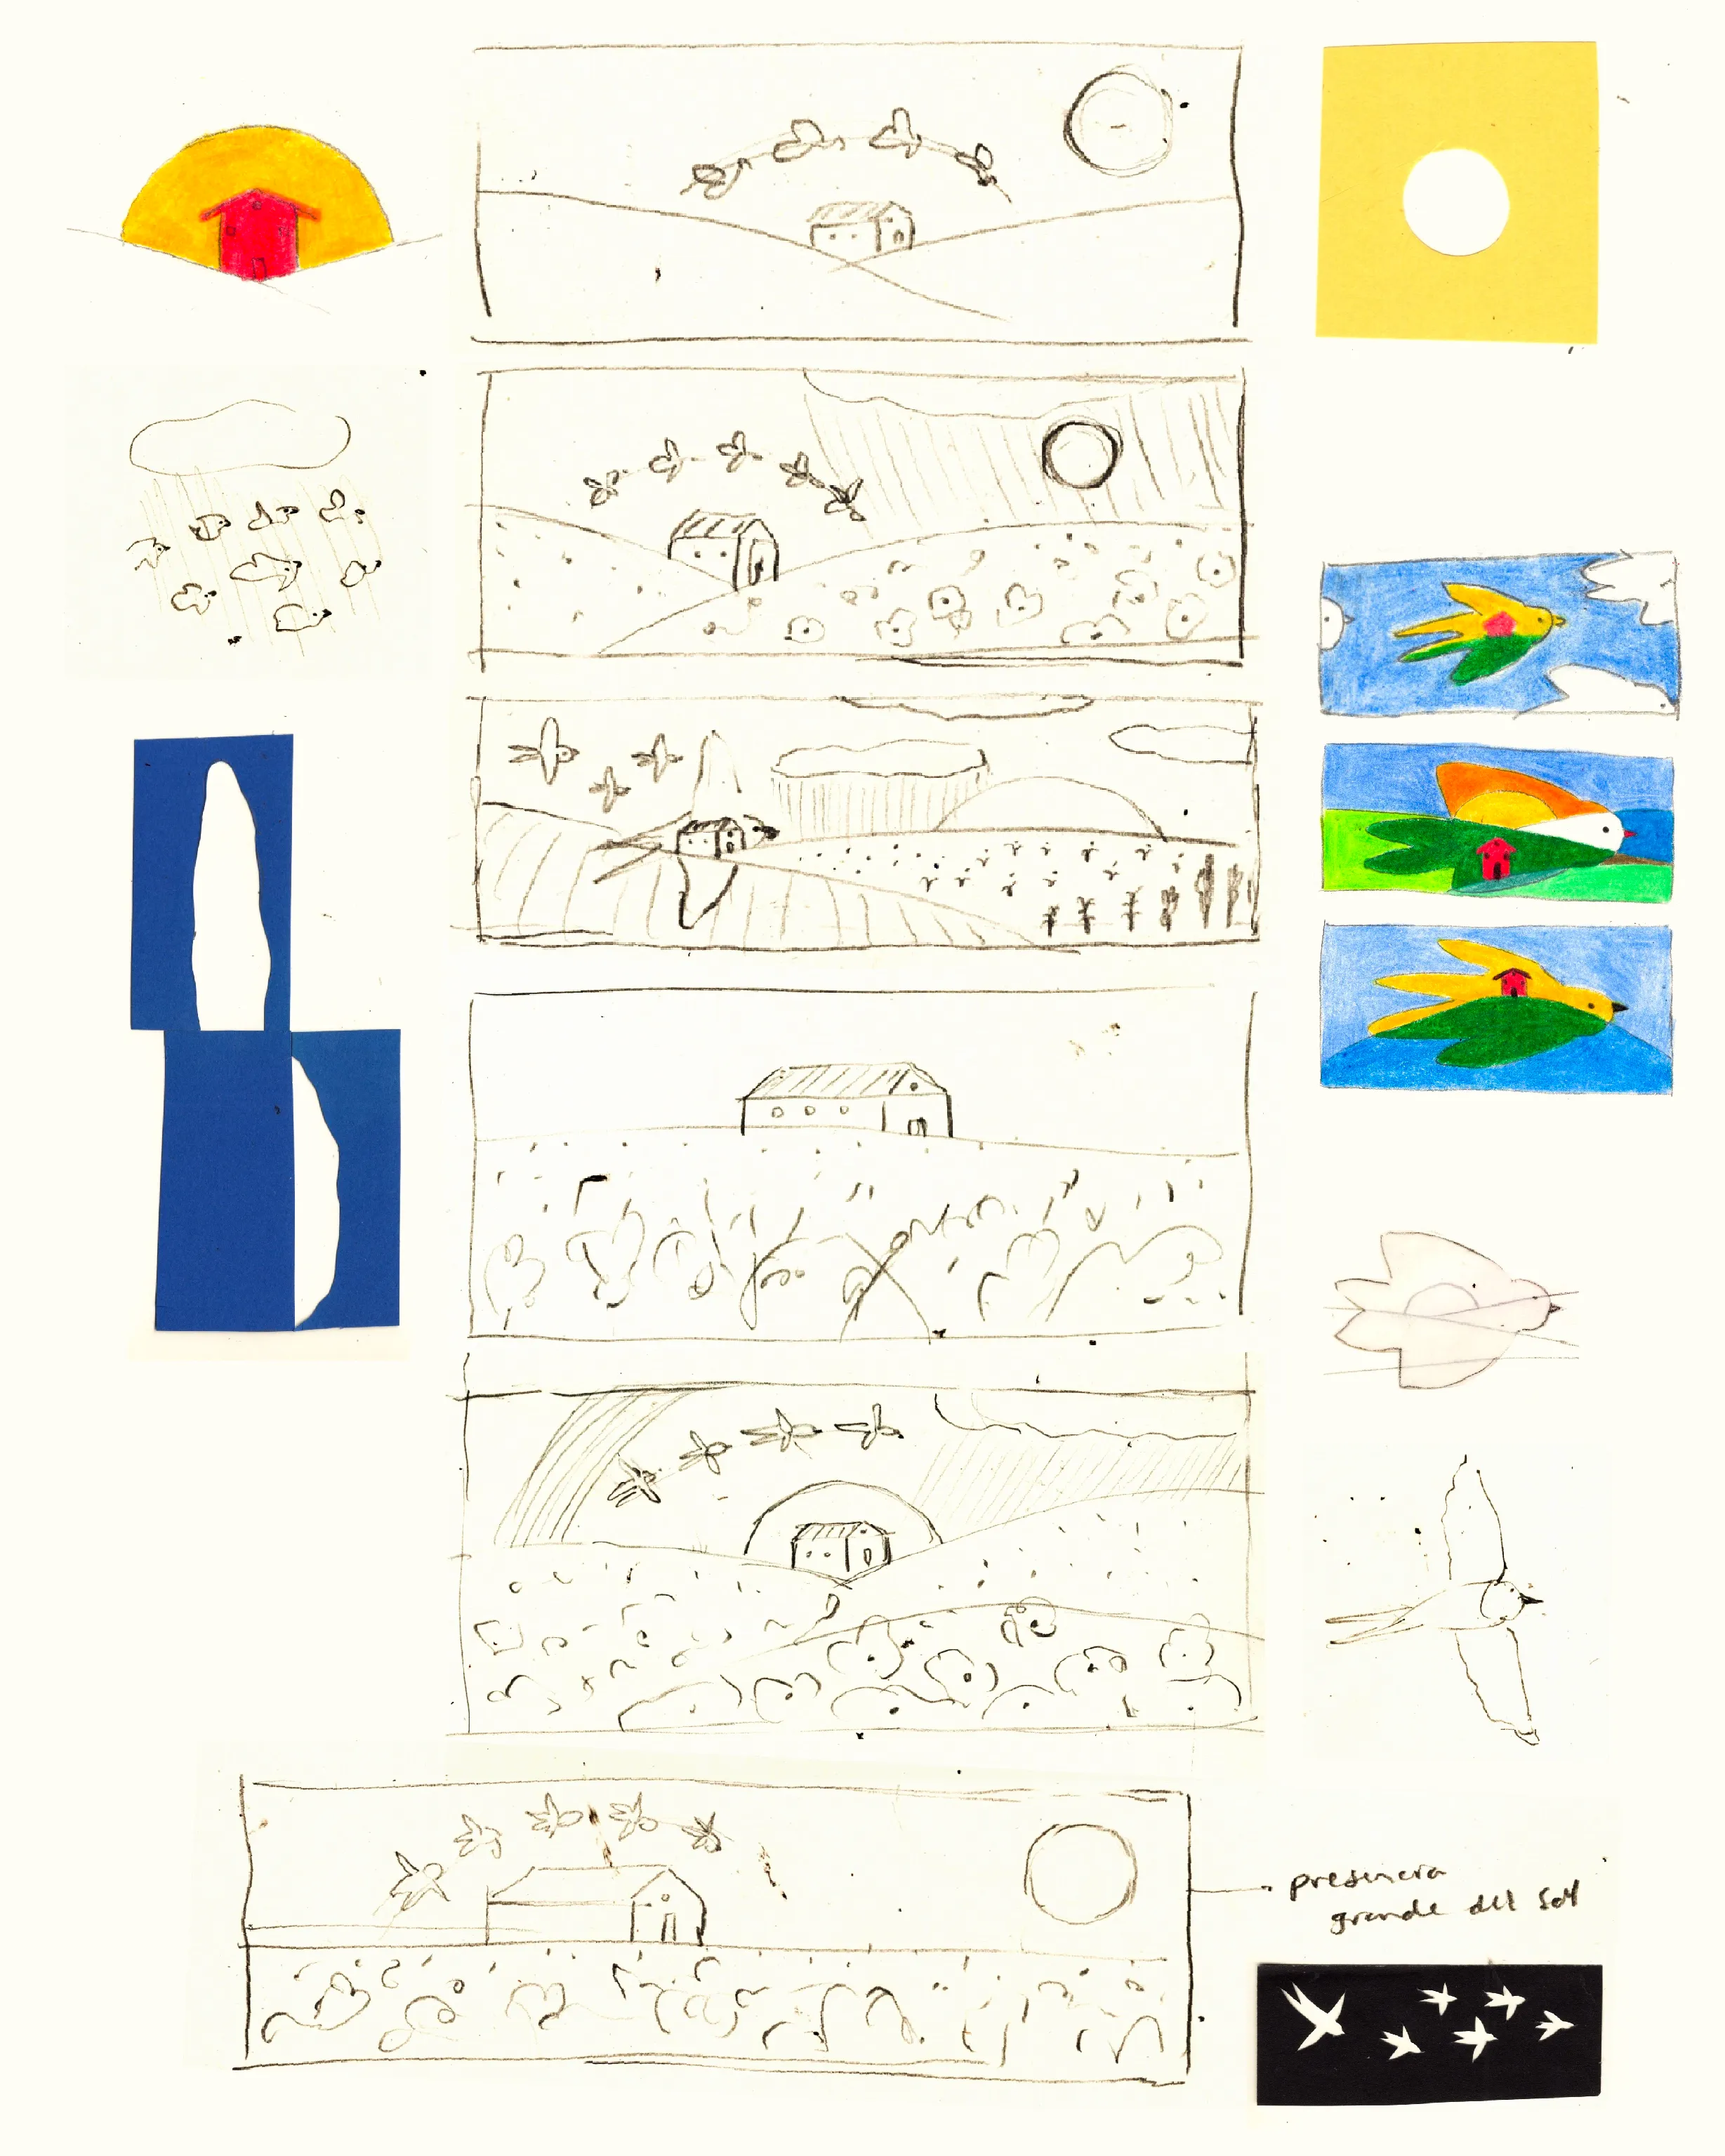 presencia
grande del Sol